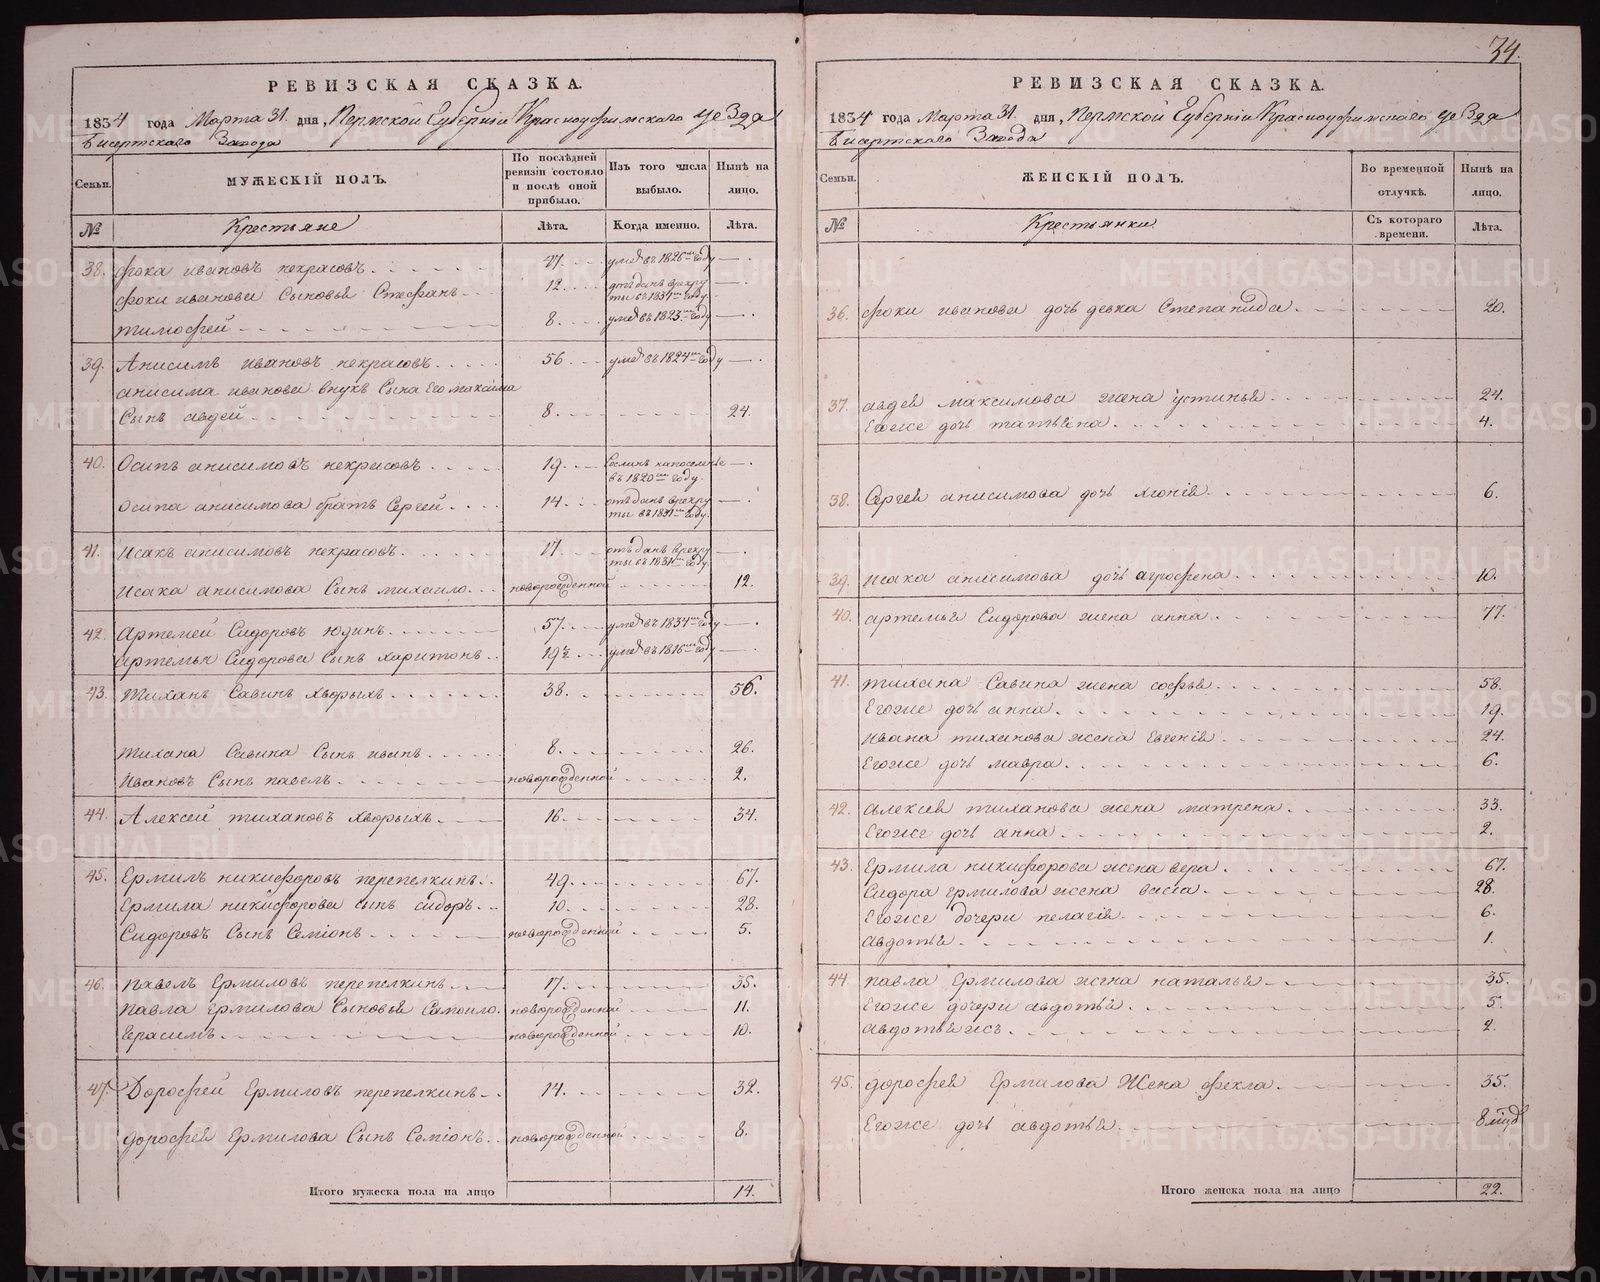 34.
РЕВИЗСКАЯ СКАЗКА.
1834 года Марта 31. дня, Пермской Губерніи Красноуфимскаго уезда
Бисертскаго Завода
Семьи.
МУЖЕСКІЙ ПОЛЪ.
По послѣдней ревизіи состояло и послѣ оной прибыло.
Изъ того числа выбыло.
Нынѣ на лицо.
№
Крестьяне
Лѣта.
Когда именно.
Лѣта.
38. фока ивановъ некрасовъ. умеръ 1826го году —.
фоки иванова Сыновья Стефанъ 12. отъданъ врекру ты въ 1831м году. —.
тимофей 8. умеръ 1823го году —.
39. Анисимъ ивановъ некрасовъ. 56 умеръ 1824го году —.
анисима иванова внукъ Сына Его максима
Сынъ авдей 8. 24.
40. Осипъ анисимовъ некрасовъ 19. Сосланъ напоселенье въ 1820м году. —.
Осипа анисимова братъ Сергей 14. отъданъ врекру ты въ 1831м году. —.
41. исакъ анисимовъ некрасовъ. 17 отъданъ врекру ты въ 1831м году. —.
исака анисимова Сынъ михаило. новорожденной 12.
42. Артемей Сидоровъ юдинъ. 57. умеръ 1834го году —.
артемья Сидорова Сынъ харитонъ. 19½ умеръ 1816го году —.
43. Тиханъ Савинъ хворыхъ 38. 56.
тихана Савина Сынъ иванъ 8. 26.
Ивановъ Сынъ павелъ новорожденной 2.
44. Алексей тихановъ хворыхъ. 16. 34.
45. Ермилъ никифоровъ перепелкинъ. 49. 67.
Ермила никифорова сынъ сидоръ. 10. 28.
Сидоровъ Сынъ Семіонъ новорожденной 5.
46. павелъ Ермиловъ перепелкинъ 17. 35.
павла Ермилова Сыновья Самоило. новорожденной 11.
Герасимъ новорожденной 10.
47. Дорофей Ермиловъ перепелкинъ. 14. 32.
дорофея Ермилова Сынъ Семіонъ. новорожденной 8.
Итого мужеска пола на лицо 14.
РЕВИЗСКАЯ СКАЗКА.
1834 года Марта 31. дня, Пермской Губерніи Красноуфимскаго уезда
Бисертскаго Завода
Семьи.
ЖЕНСКІЙ ПОЛЪ.
Во временной отлучкѣ.
Нынѣ на лицо.
№
Крестьянки
Съ котораго времени.
Лѣта.
36. фоки иванова дочь девка Степанида 20.
37. авдея максимова жена устинья 24.
Егоже дочь татьяна. 4.
38. Сергея анисимова дочь хіонія 6.
39. исака анисимова дочь агрофена 10.
40. артемья Сидорова жена анна 77.
41. тихана Савина жена софья 58.
Егоже дочь анна. 19.
Ивана тиханова жена Евгенія 24.
Егоже дочь мавра 6.
42. алексея тиханова жена матрена 33.
Егоже дочь анна 2.
43. Ермила никифорова жена вера. 67.
Сидора Ермилова жена васса 28.
Егоже дочери пелагія 6.
авдотья 1.
44 павла Ермилова жена наталья 35.
Егоже дочери авдотья 5.
авдотья жъ 2.
45. дорофея Ермилова Жена фекла. 35.
Егоже дочь авдотья 8 мцъ
Итого женска пола на лицо 22.
METRIKI.GASO-URAL.RU